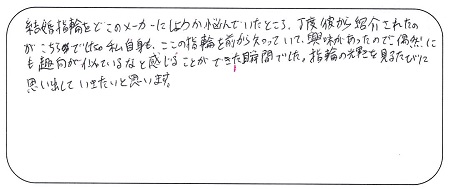 結婚指輪をどこのメーカーにしようか悩んでいたところ、丁度彼から紹介されたの
がこちらでした。私自身も、ここの指輪を前から知っていて、興味があったので、偶然にも
も趣向が似ているなと感じることができた瞬間でした。指輪の光彩を見るたびに
思い出していきたいと思います。